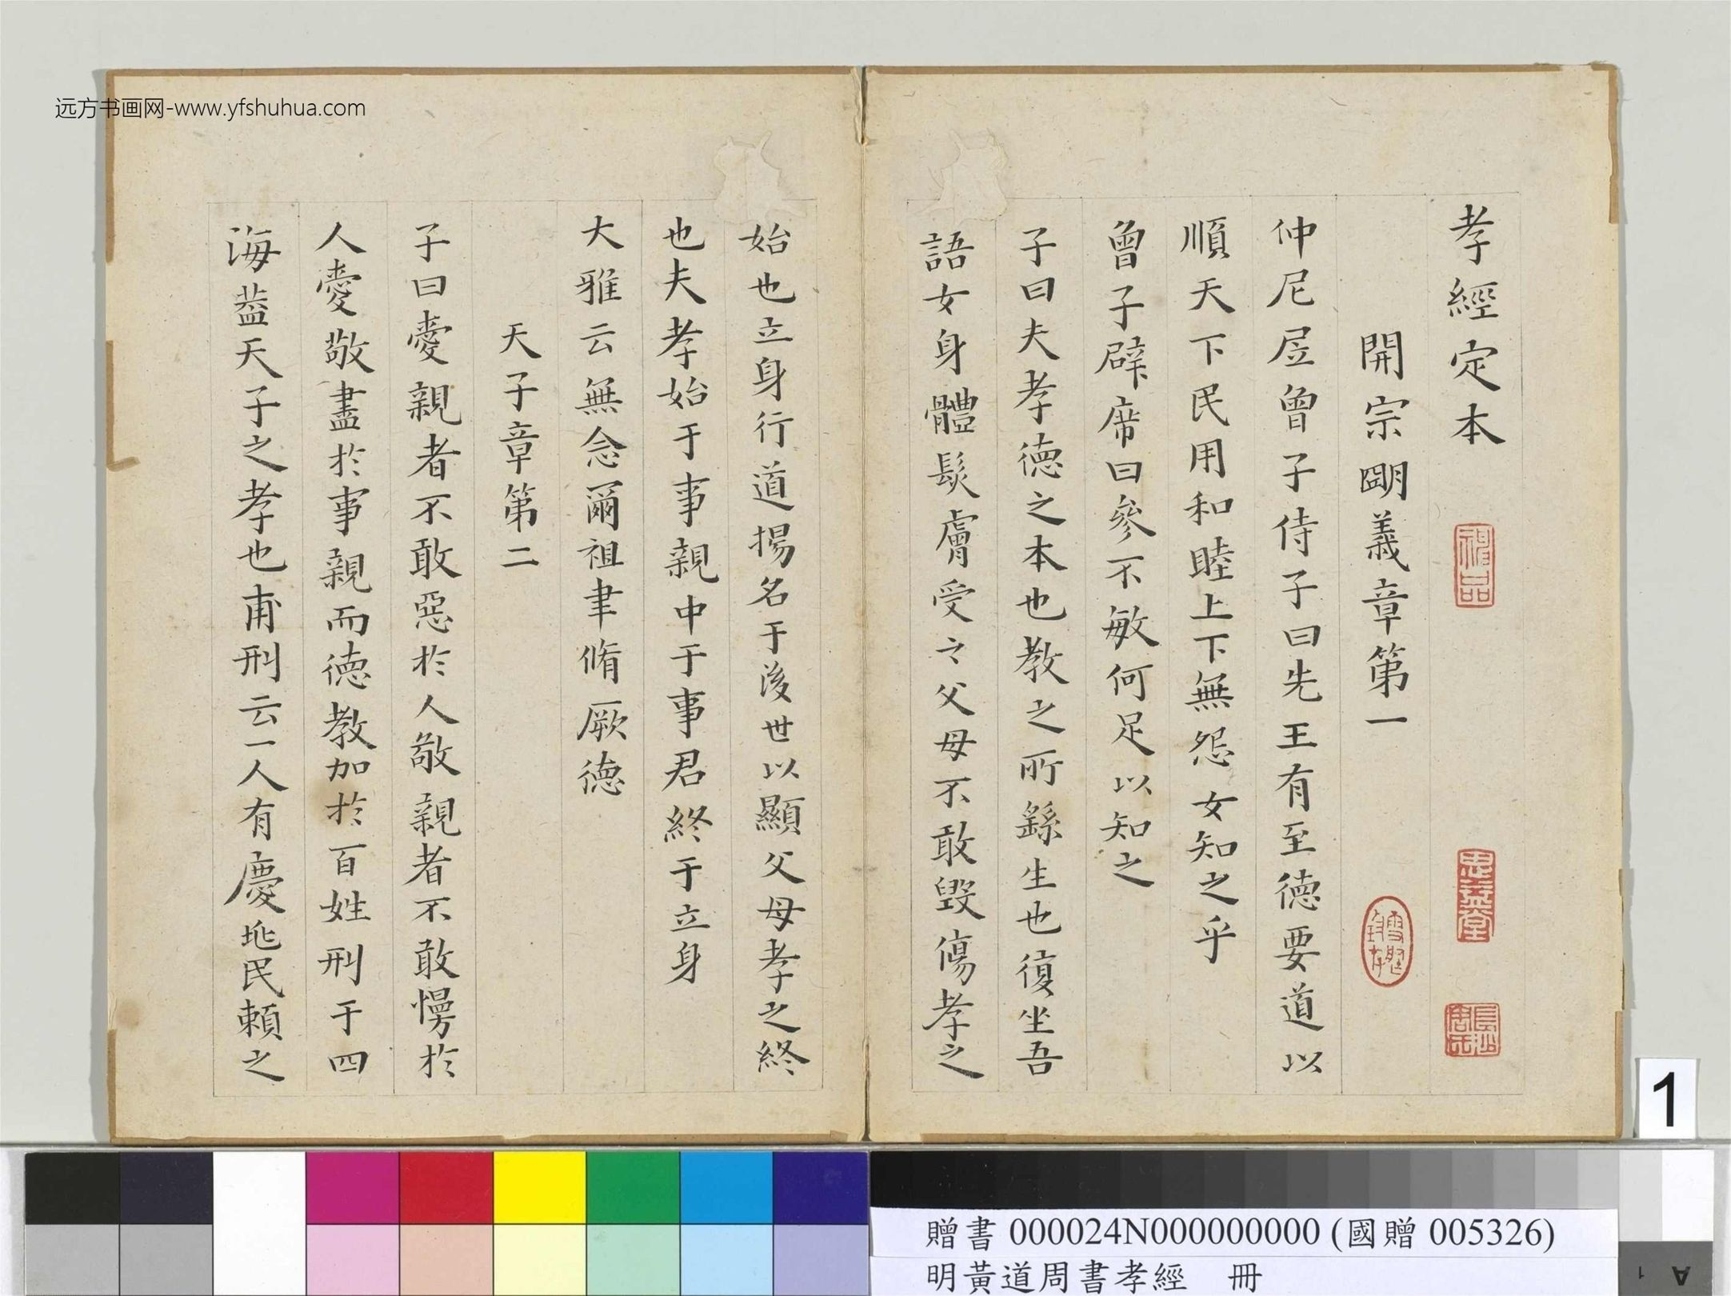 远方书画网-www.yfshuhua.com
孝經定本
開宗朙義章第一
仲尼凥曾子侍子曰先王有至德要道以
順天下民用和睦上下無怨女知之乎
曾子辟席曰參不敏何足以知之
子曰夫孝德之本也教之所繇生也復坐吾
語女身體髮膚受之父母不敢毀傷孝之
始也立身行道揚名于後世以顯父母孝之終
也夫孝始于事親中于事君終于立身
大雅云無念爾祖聿脩厥德
天子章第二
子曰愛親者不敢惡於人敬親者不敢慢於
人愛敬盡於事親而德教加於百姓刑于四
海葢天子之孝也甫刑云一人有慶兆民賴之
神品
忠益堂
1
贈書 000024N000000000 (國贈 005326)
明黃道周書孝經 冊
A 1